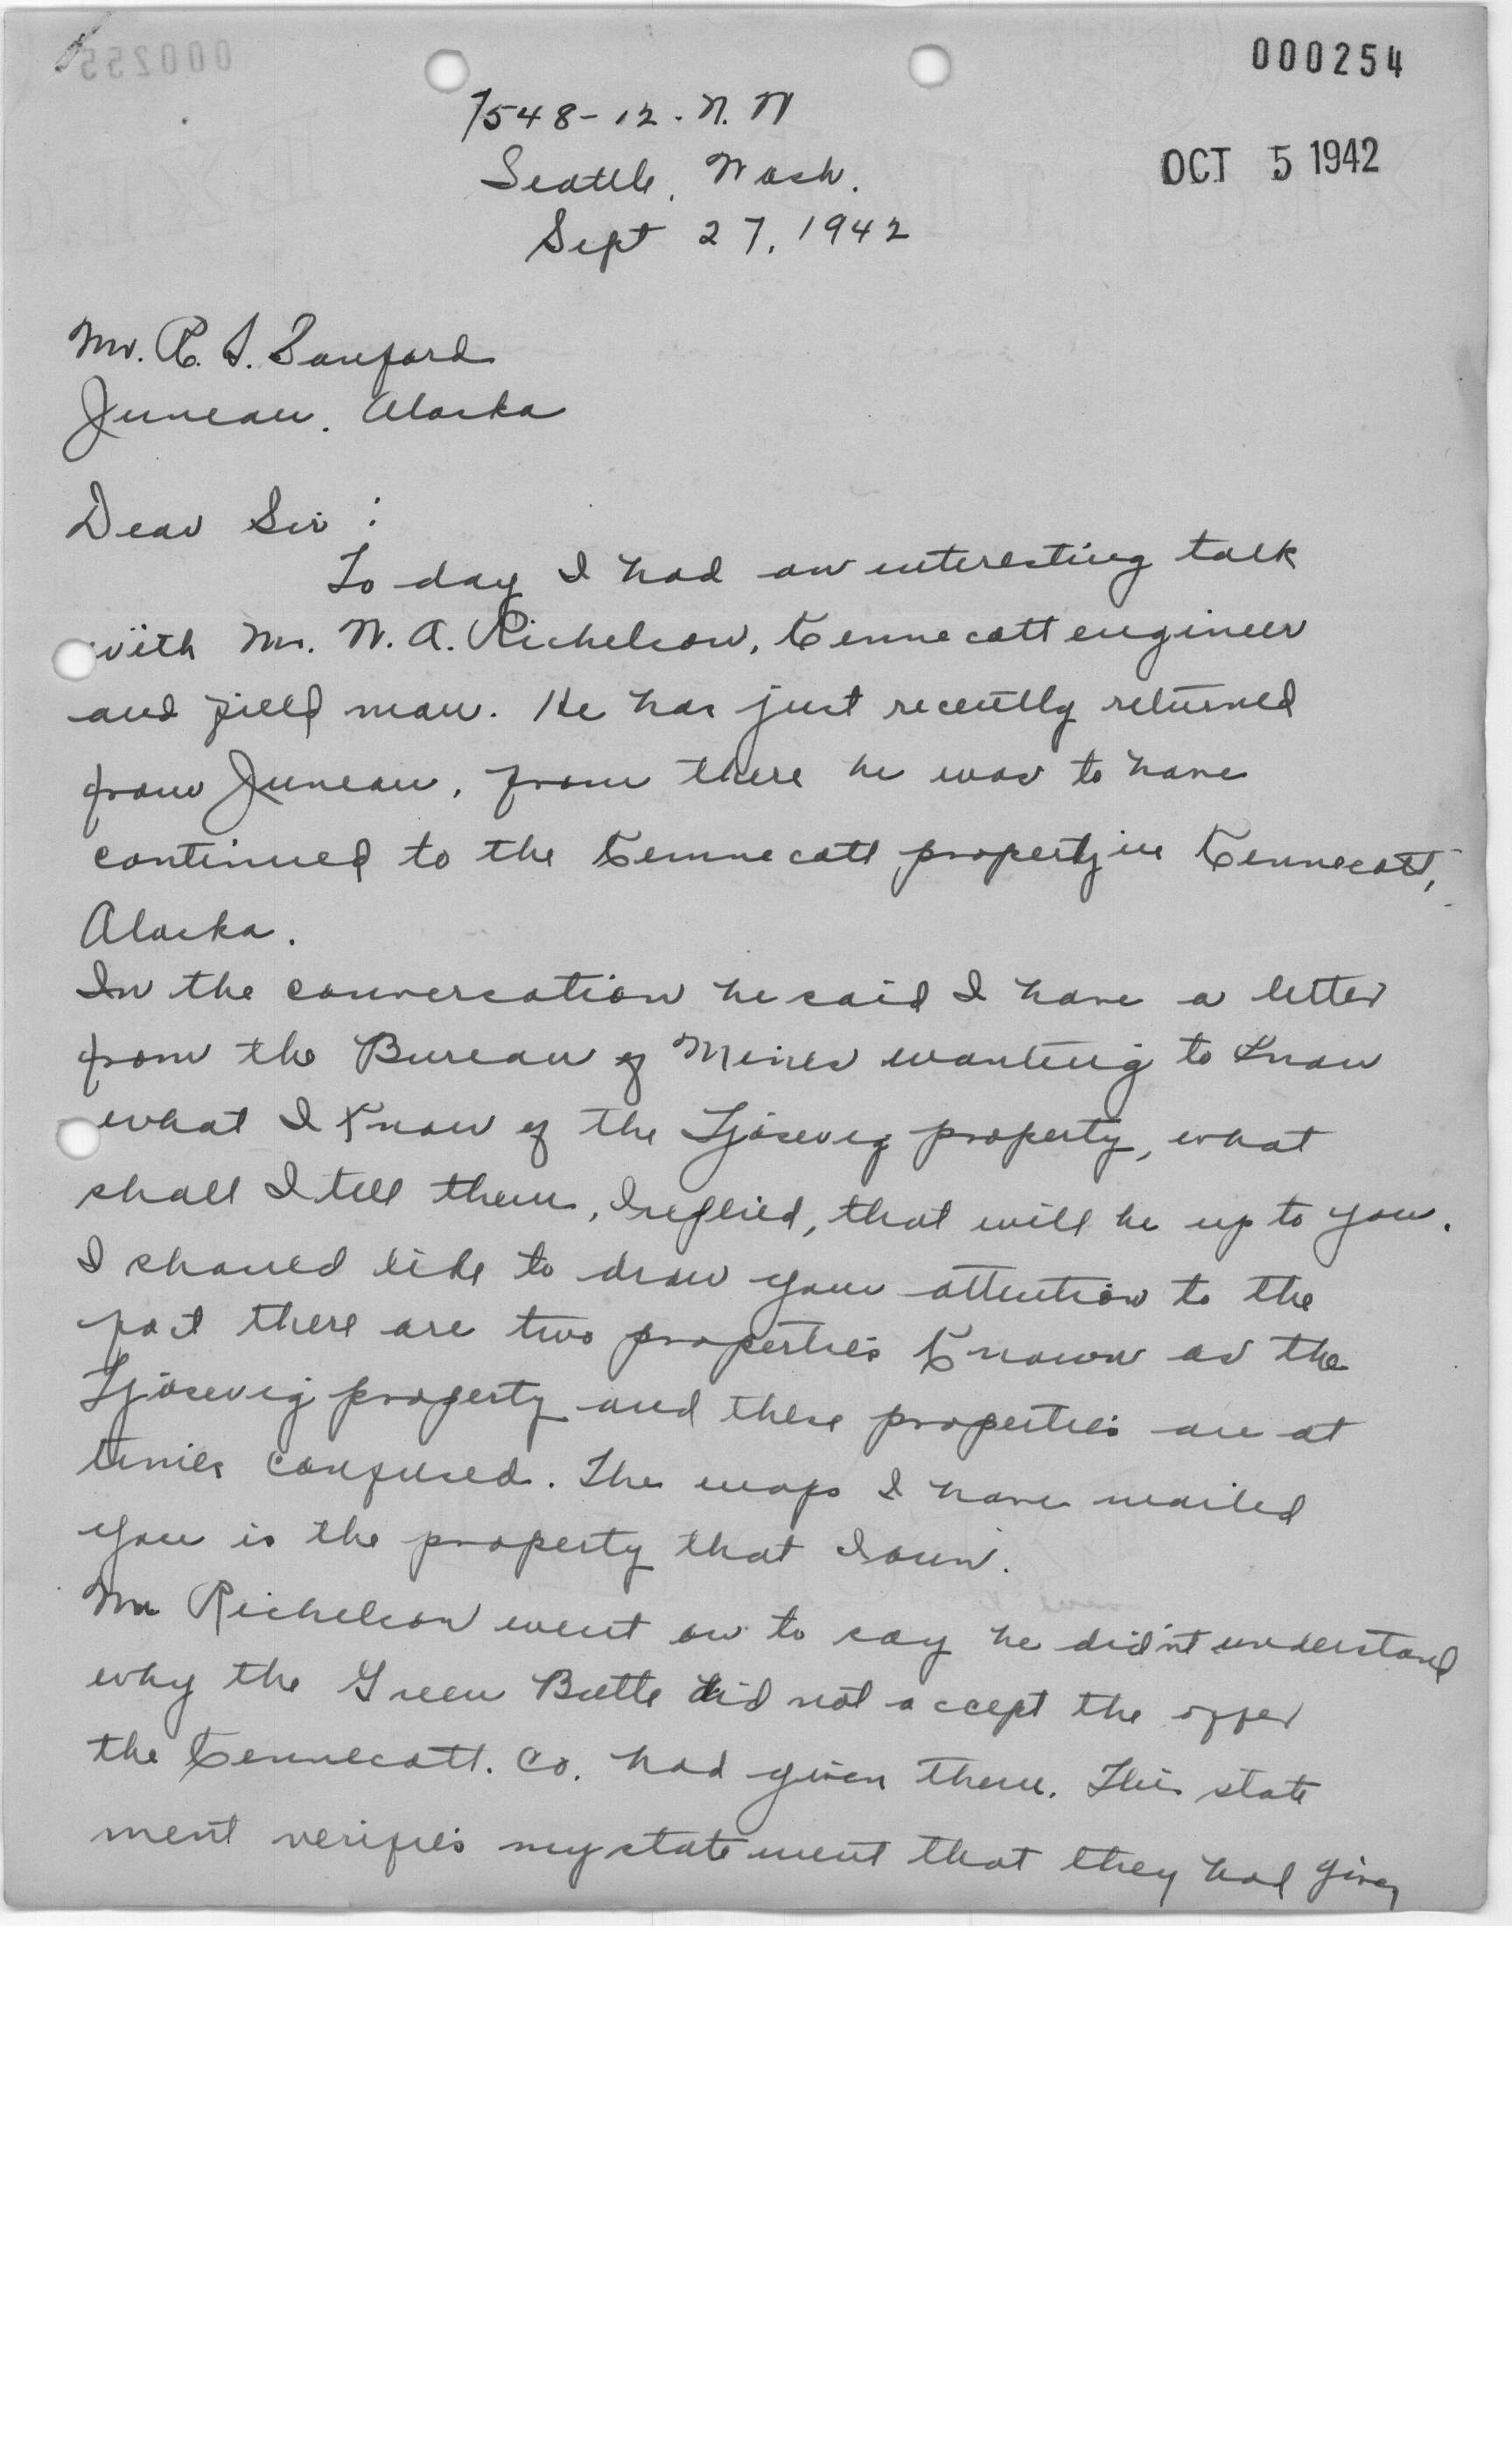 000255
000254
7548-12. N. W
Seattle, Wash.
OCT 5 1942
Sept 27, 1942
Mr. R. S. Sanford
Juneau, Alaska
Dear Sir :
To day I had an interesting talk
with Mr. W. A. Richelson, Kennecott engineer
and field man. He has just recently returned
from Juneau, from there he was to have
continued to the Kennecott property in Kennecott,
Alaska.
In the conversation he said I have a letter
from the Bureau of Mines wanting to know
what I know of the Tjosevig property, what
shall I tell them, I replied, that will be up to you.
I should like to draw your attention to the
fact there are two properties known as the
Tjosevig property and these properties are at
times confused. The maps I have mailed
you is the property that I own.
Mr Richelson went on to say he didn't understand
why the Green Butte did not accept the offer
the Kennecott. Co. had given them. This state
ment verifies my statement that they had given